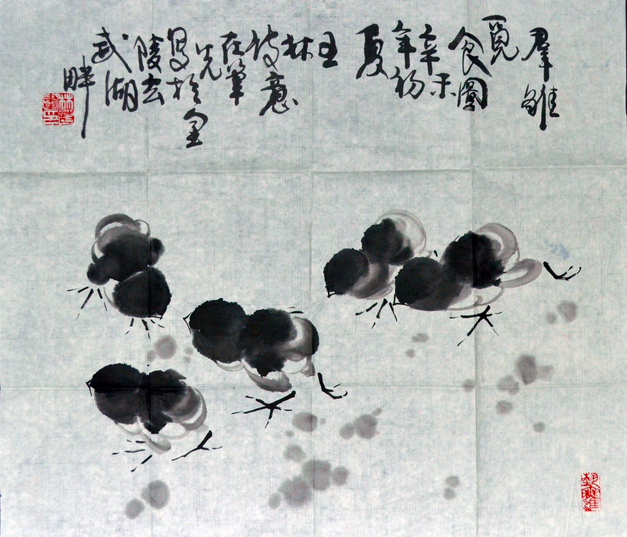 羣雛
覓
食圖
辛未
年初
夏
王
林
意
在筆
先
寫於金
陵玄
武湖
畔